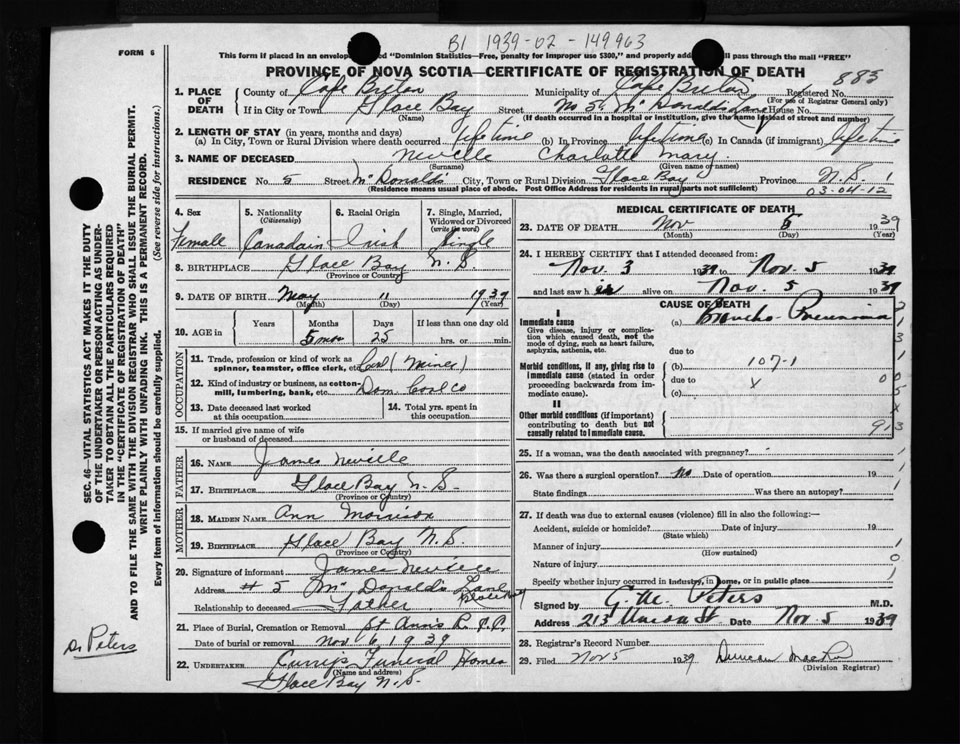 B1 1939-02-149963
FORM 6
This form if placed in an envelope "Dominion Statistics—Free, penalty for improper use $300," and properly pass through the mail "FREE"
PROVINCE OF NOVA SCOTIA—CERTIFICATE OF REGISTRATION OF DEATH
883
1. PLACE OF DEATH
County of Cape Breton Municipality of Cape Breton Registered No.
(For use of Registrar General only)
If in City or Town Glace Bay Street No 5 McDonalds Lane House No.
(Name) (If death occurred in a hospital or institution, give the name instead of street and number)
2. LENGTH OF STAY (in years, months and days)
(a) In City, Town or Rural Division where death occurred lifetime (b) In Province lifetime (c) In Canada (if immigrant) lifetime
3. NAME OF DECEASED Neville Charlotte Mary
(Surname) (Given name or names)
RESIDENCE No. 5 Street McDonalds City, Town or Rural Division Glace Bay Province N.S. 1
(Residence means usual place of abode. Post Office Address for residents in rural parts not sufficient)
03-04-12
4. Sex
Female
5. Nationality
(Citizenship)
Canadain
6. Racial Origin
Irish
7. Single, Married, Widowed or Divorced
(write the word)
Single
8. BIRTHPLACE Glace Bay N.S.
(Province or Country)
9. DATE OF BIRTH May 11 1939
(Month) (Day) (Year)
10. AGE in
Years Months Days If less than one day old
5 mos 25 hrs. or min.
OCCUPATION
11. Trade, profession or kind of work as spinner, teamster, office clerk, etc. Coal (Miner)
12. Kind of industry or business, as cotton-mill, lumbering, bank, etc. Dom. Coal Co
13. Date deceased last worked at this occupation
14. Total yrs. spent in this occupation
15. If married give name of wife or husband of deceased
FATHER
16. NAME James Neville
17. BIRTHPLACE Glace Bay N.S.
(Province or Country)
MOTHER
18. MAIDEN NAME Ann Morrison
19. BIRTHPLACE Glace Bay N.S.
(Province or Country)
20. Signature of informant James Neville
Address # 5 McDonalds Lane Glace Bay
Relationship to deceased Father
21. Place of Burial, Cremation or Removal St Ann's R.C.C.
Date of burial or removal Nov 6, 1939
22. UNDERTAKER Funeral Homes
(Name and address)
Glace Bay N.S.
MEDICAL CERTIFICATE OF DEATH
23. DATE OF DEATH Nov 5 1939
(Month) (Day) (Year)
24. I HEREBY CERTIFY that I attended deceased from:
Nov. 3 1939 to Nov. 5 1939
and last saw h er alive on Nov. 5 1939
CAUSE OF DEATH
I
Immediate cause
Give disease, injury or complication which caused death, not the mode of dying, such as heart failure, asphyxia, asthenia, etc.
(a) Broncho-Pneumonia
due to
Morbid conditions, if any, giving rise to immediate cause (stated in order proceeding backwards from immediate cause).
(b) 107-1
due to
(c)
II
Other morbid conditions (if important) contributing to death but not causally related to immediate cause.
25. If a woman, was the death associated with pregnancy?
26. Was there a surgical operation? No Date of operation 19
State findings Was there an autopsy?
27. If death was due to external causes (violence) fill in also the following:—
Accident, suicide or homicide? Date of injury 19
(State which)
Manner of injury
(How sustained)
Nature of injury
Specify whether injury occurred in industry, in home, or in public place
Signed by Peters M.D.
Address 213 Union St Date Nov. 5 1939
28. Registrar's Record Number
29. Filed Nov 5 1939 Duncan
(Division Registrar)
SEC. 46—VITAL STATISTICS ACT MAKES IT THE DUTY
OF THE UNDERTAKER OR PERSON ACTING AS UNDER-
TAKER TO OBTAIN ALL THE PARTICULARS REQUIRED
IN THE "CERTIFICATE OF REGISTRATION OF DEATH"
AND TO FILE THE SAME WITH THE DIVISION REGISTRAR WHO SHALL ISSUE THE BURIAL PERMIT.
WRITE PLAINLY WITH UNFADING INK. THIS IS A PERMANENT RECORD.
Every item of information should be carefully supplied. (See reverse side for instructions.)
Dr Peters